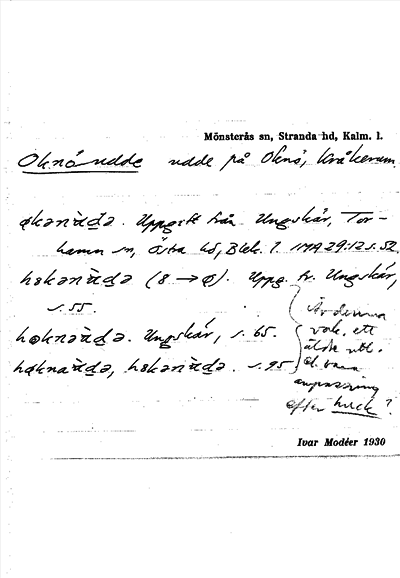 Mönsterås sn, Stranda hd, Kalm. l.
Oknö udde udde på Oknö, Kråkerum.
økənùdə. Uppgett från Ungskär, Tor-
hamn sn, Östra hd, Blek. l. IMA 29:12 s. 52.
h8kənùdə (8 → ø). Uppg. fr. Ungskär,
s. 55.
høknùdə. Ungskär, s. 65.
s. 95
Är denna
vok. ett
äldre utl.
el. bara
anpassning
efter huck?
Ivar Modéer 1930